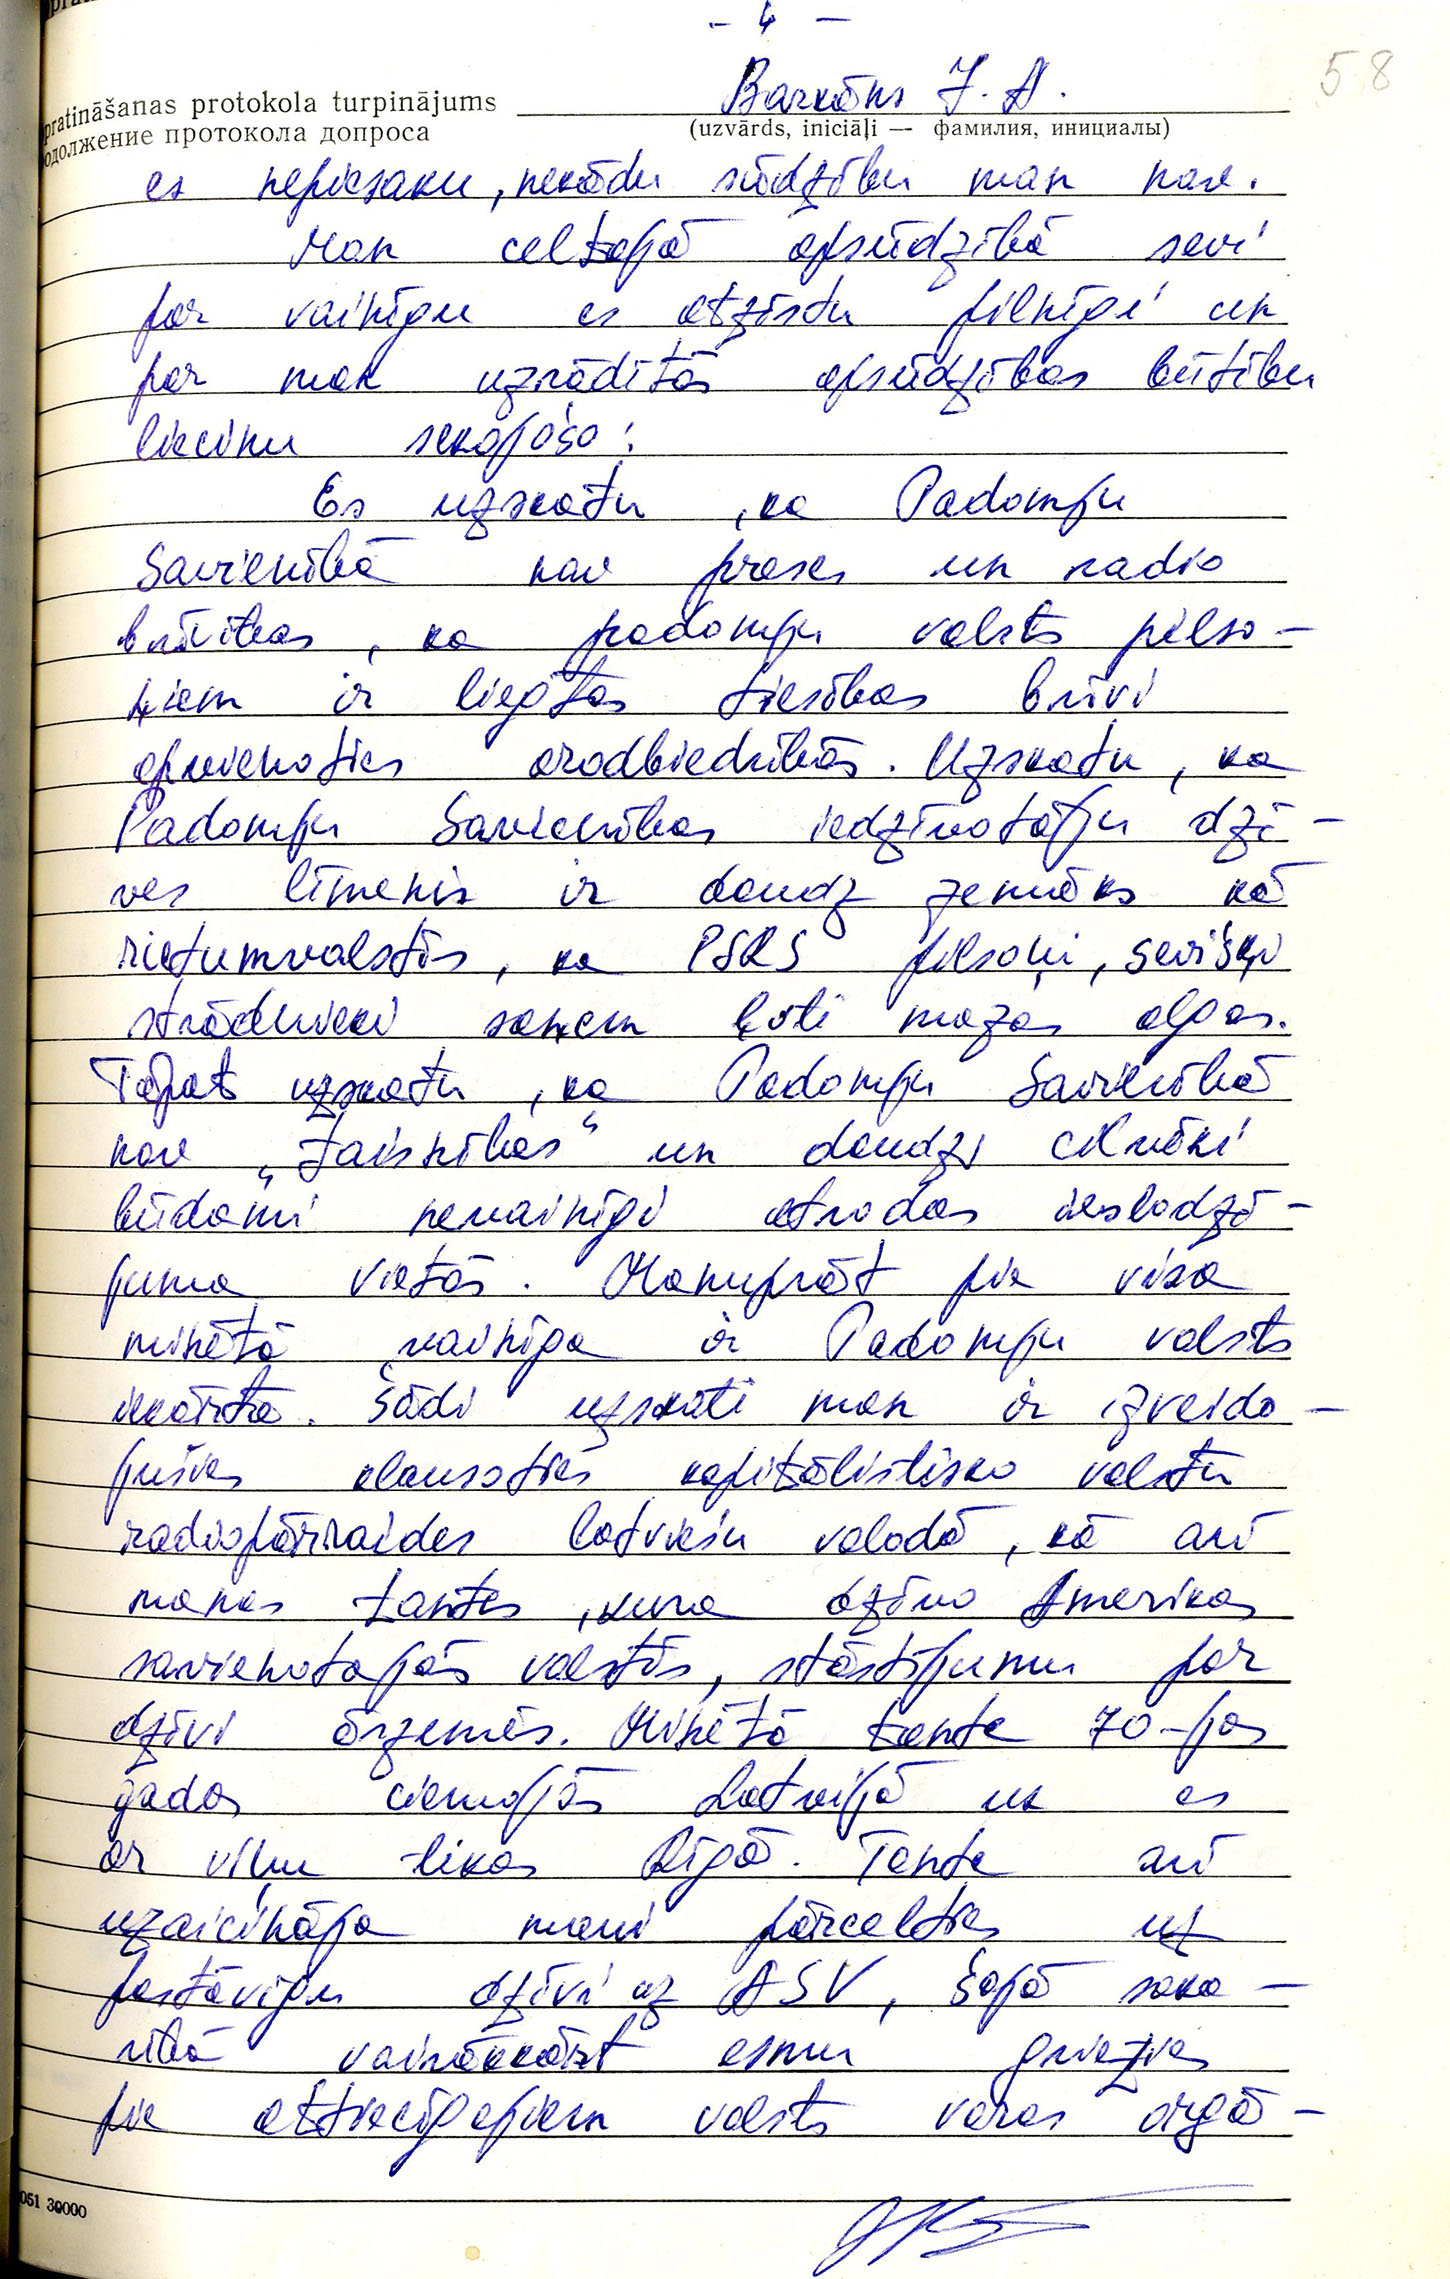 - 4 -
58
pratināšanas protokola turpinājums
одолжение протокола допроса
Barkāns J. A.
(uzvārds, iniciāļi — фамилия, инициалы)
es nepiesaku, nekādu sūdzību man nav.
Man celtajā apsūdzībā sevi
par vainīgu es atzīstu pilnīgi un
par man uzrādītās apsūdzības būtību
liecinu sekojošo:
Es uzskatu, ka Padomju
Savienībā nav preses un radio
brīvības, ka padomju valsts pilso-
ņiem ir liegtas tiesības brīvi
apvienoties arodbiedrībās. Uzskatu, ka
Padomju Savienības iedzīvotāju dzī-
ves līmenis ir daudz zemāks kā
rietumvalstīs, ka PSRS pilsoņi, sevišķi
strādnieki saņem ļoti mazas algas.
Tāpat uzskatu, ka Padomju Savienībā
nav „taisnības“ un daudzi cilvēki
būdami nevainīgi atrodas ieslodzī-
juma vietās. Manuprāt pie visa
minētā vainīga ir Padomju valsts
iekārta. Šādi uzskati man ir izveido-
jušies klausoties kapitālistisko valstu
radiopārraides latviešu valodā, kā arī
manas tantes, kura dzīvo Amerikas
savienotajās valstīs, stāstījumu par
dzīvi ārzemēs. Minētā tante 70-jos
gados ciemojās Latvijā un es
ar viņu tikos Rīgā. Tante arī
uzaicināja mani pārcelties uz
pastāvīgu dzīvi uz ASV, šajā saka-
rībā vairākkārt esmu griezies
pie attiecīgajiem valsts varas orgā-
051 30000